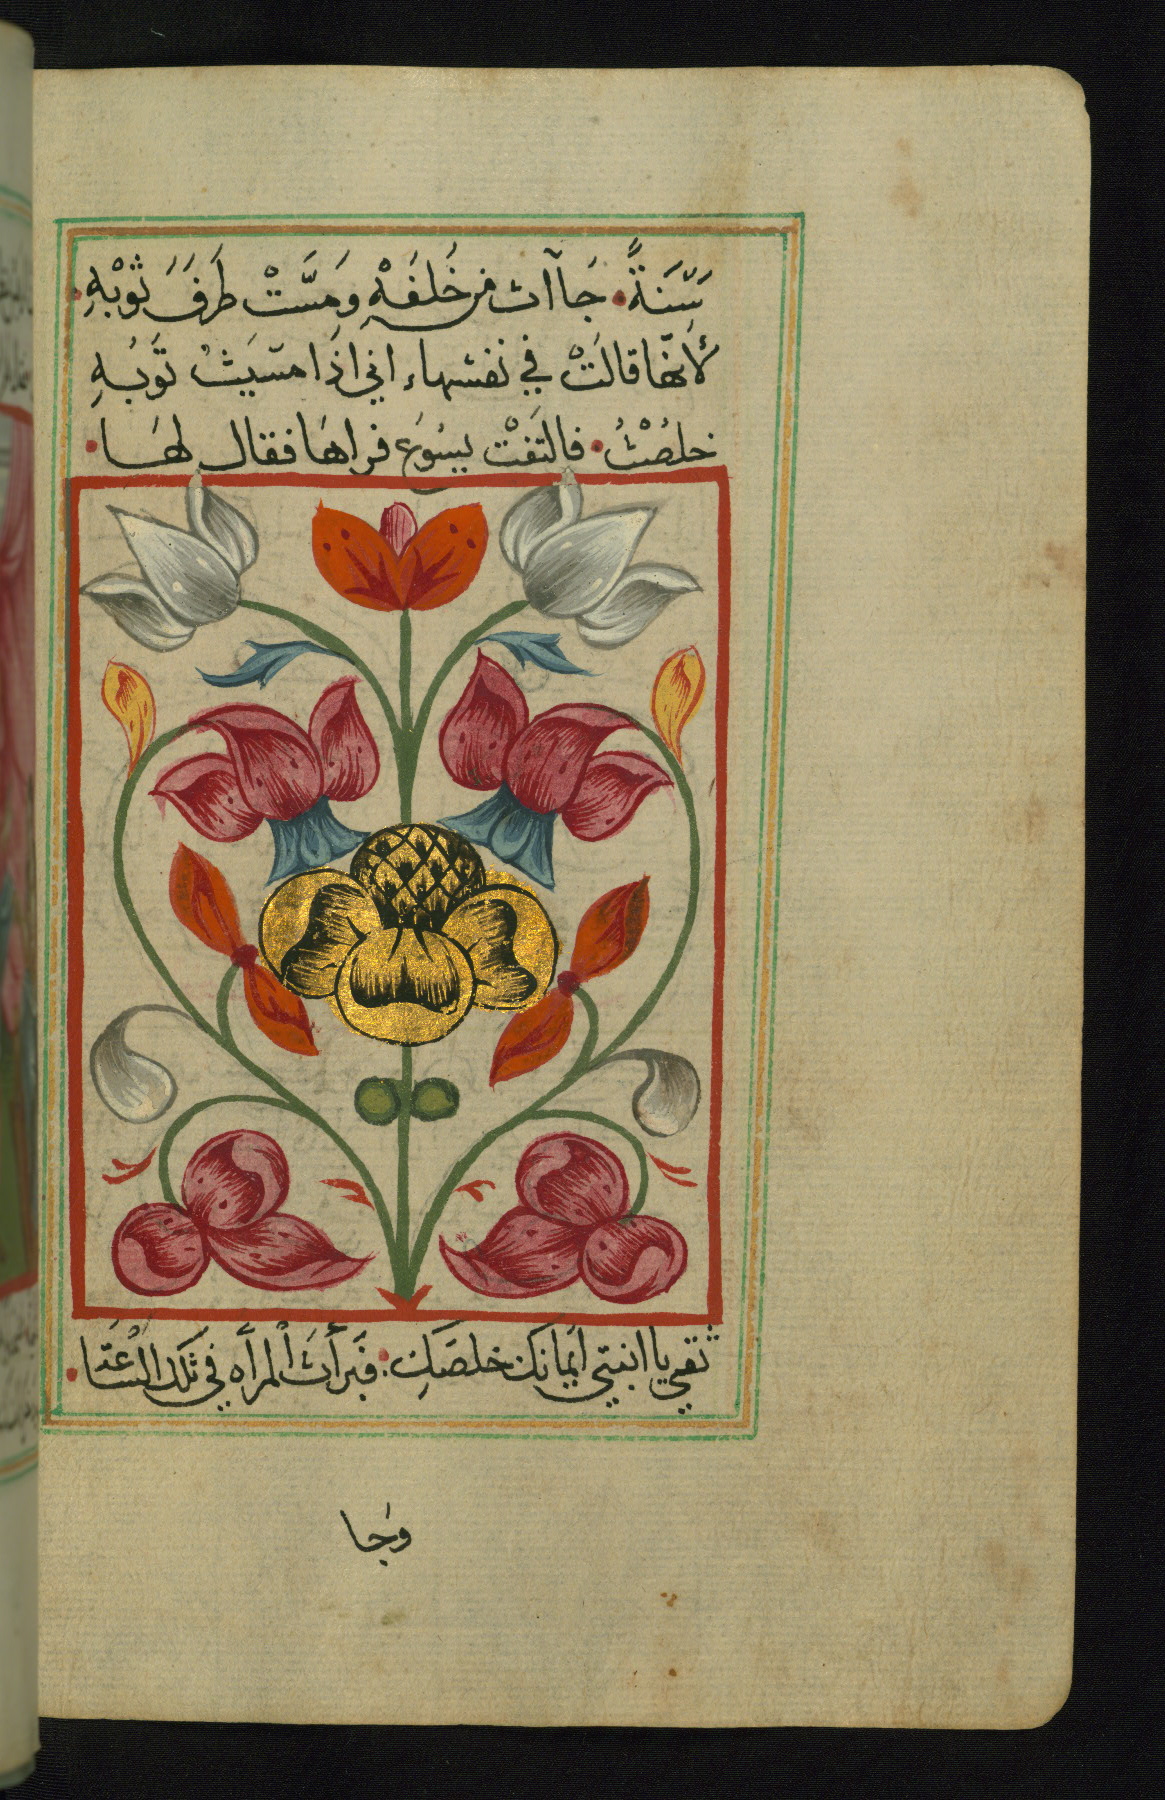 سَنَةً • جَاآت من خَلفَهْ وَمَسَّتْ طَرَفَ ثَوْبْهِ •
لأَنهّا قالَتْ في نفسَها، اني اذَا امسّيَتْ ثَوبُهِ
خلصُتْ • فالتَفتْ يسُوَع فراهَا فقال لهَا •
ثقي يا ابنتي ايَمانَكَ خلصَكِ : فَبَرأَتَ اْلمرأَه في تلَك السْاعَة •
وَجا